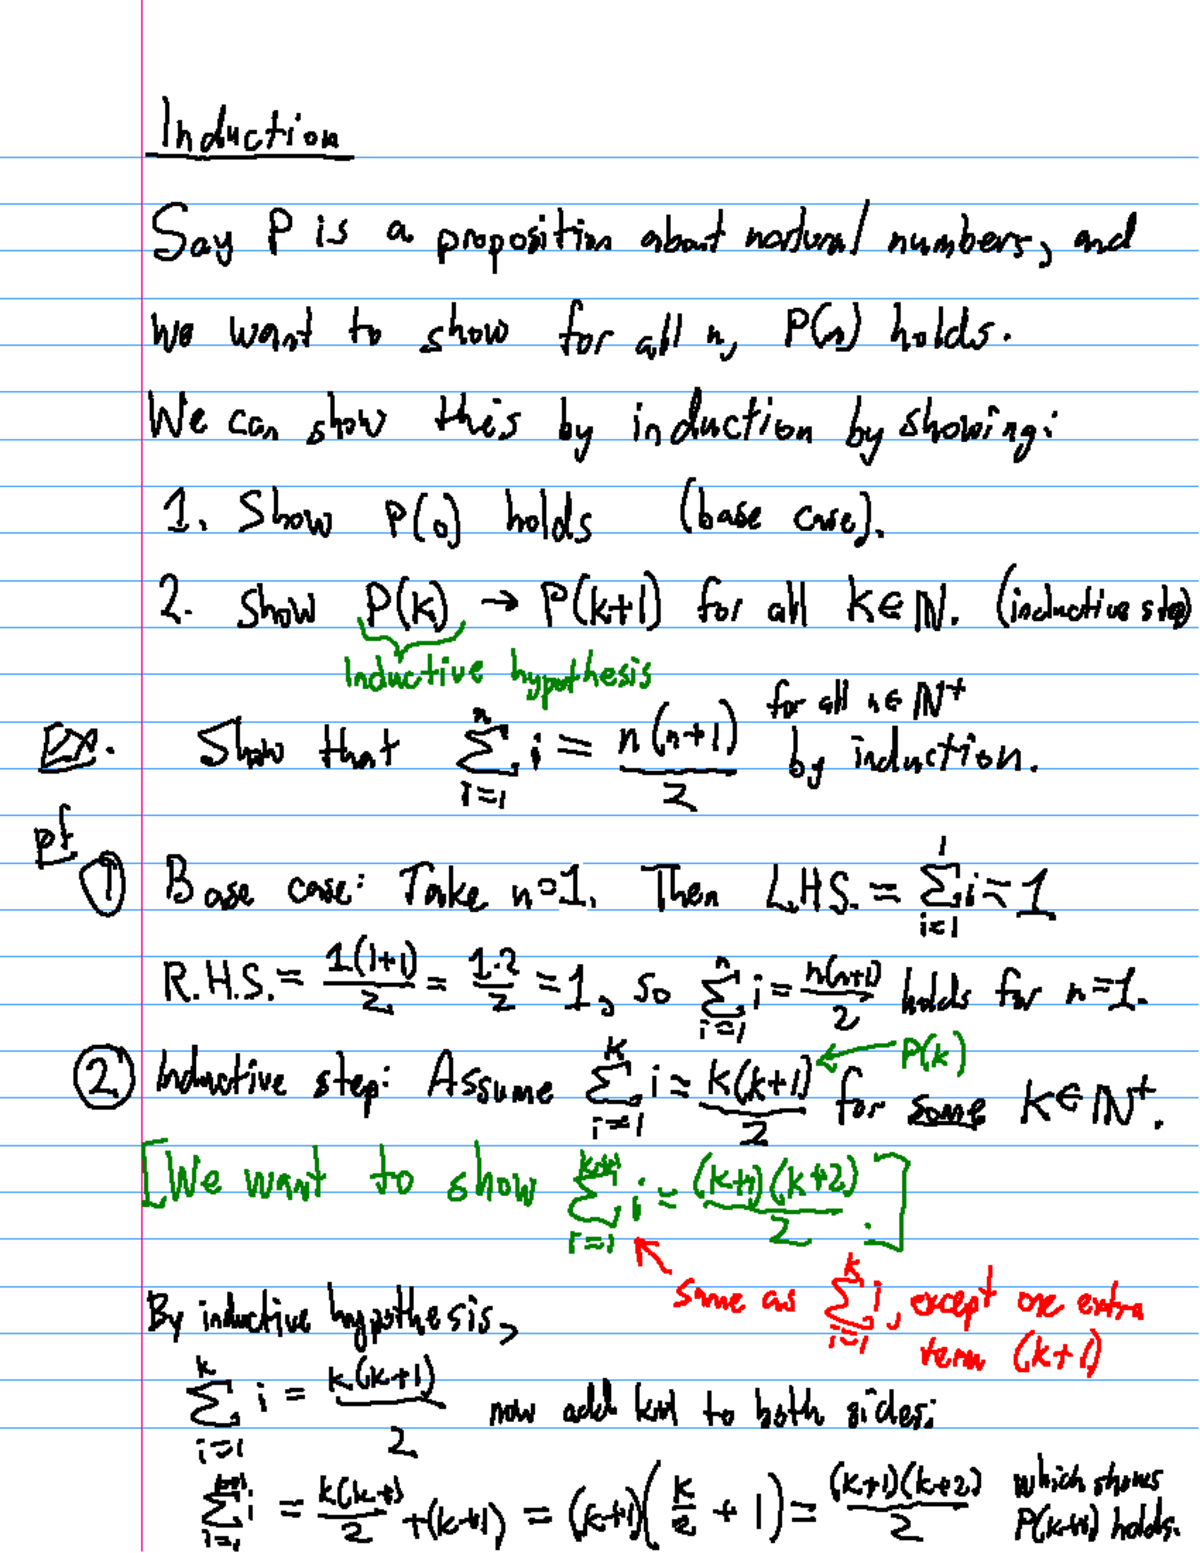 Induction
Say P is a proposition about natural numbers, and
we want to show for all n, P(n) holds.
We can show this by induction by showing:
1. Show P(0) holds (base case).
2. Show P(k) → P(k+1) for all k∈ℕ. (inductive step)
Inductive hypothesis
Ex. Show that \sum_{i=1}^{n} i = \frac{n(n+1)}{2} for all n∈ℕ⁺ by induction.
pf
① Base case: Take n=1. Then L.H.S. = \sum_{i=1}^{1} i = 1
R.H.S. = \frac{1(1+1)}{2} = \frac{1·2}{2} = 1, so \sum_{i=1}^{n} i = \frac{n(n+1)}{2} holds for n=1.
② Inductive step: Assume \sum_{i=1}^{k} i = \frac{k(k+1)}{2} ← P(k) for some k∈ℕ⁺.
[We want to show \sum_{i=1}^{k+1} i = \frac{(k+1)(k+2)}{2}.]
same as \sum_{i=1}^{k} i, except one extra
term (k+1)
By inductive hypothesis,
\sum_{i=1}^{k} i = \frac{k(k+1)}{2} now add k+1 to both sides:
\sum_{i=1}^{k+1} i = \frac{k(k+1)}{2} + (k+1) = (k+1)(\frac{k}{2} + 1) = \frac{(k+1)(k+2)}{2} which shows
P(k+1) holds.